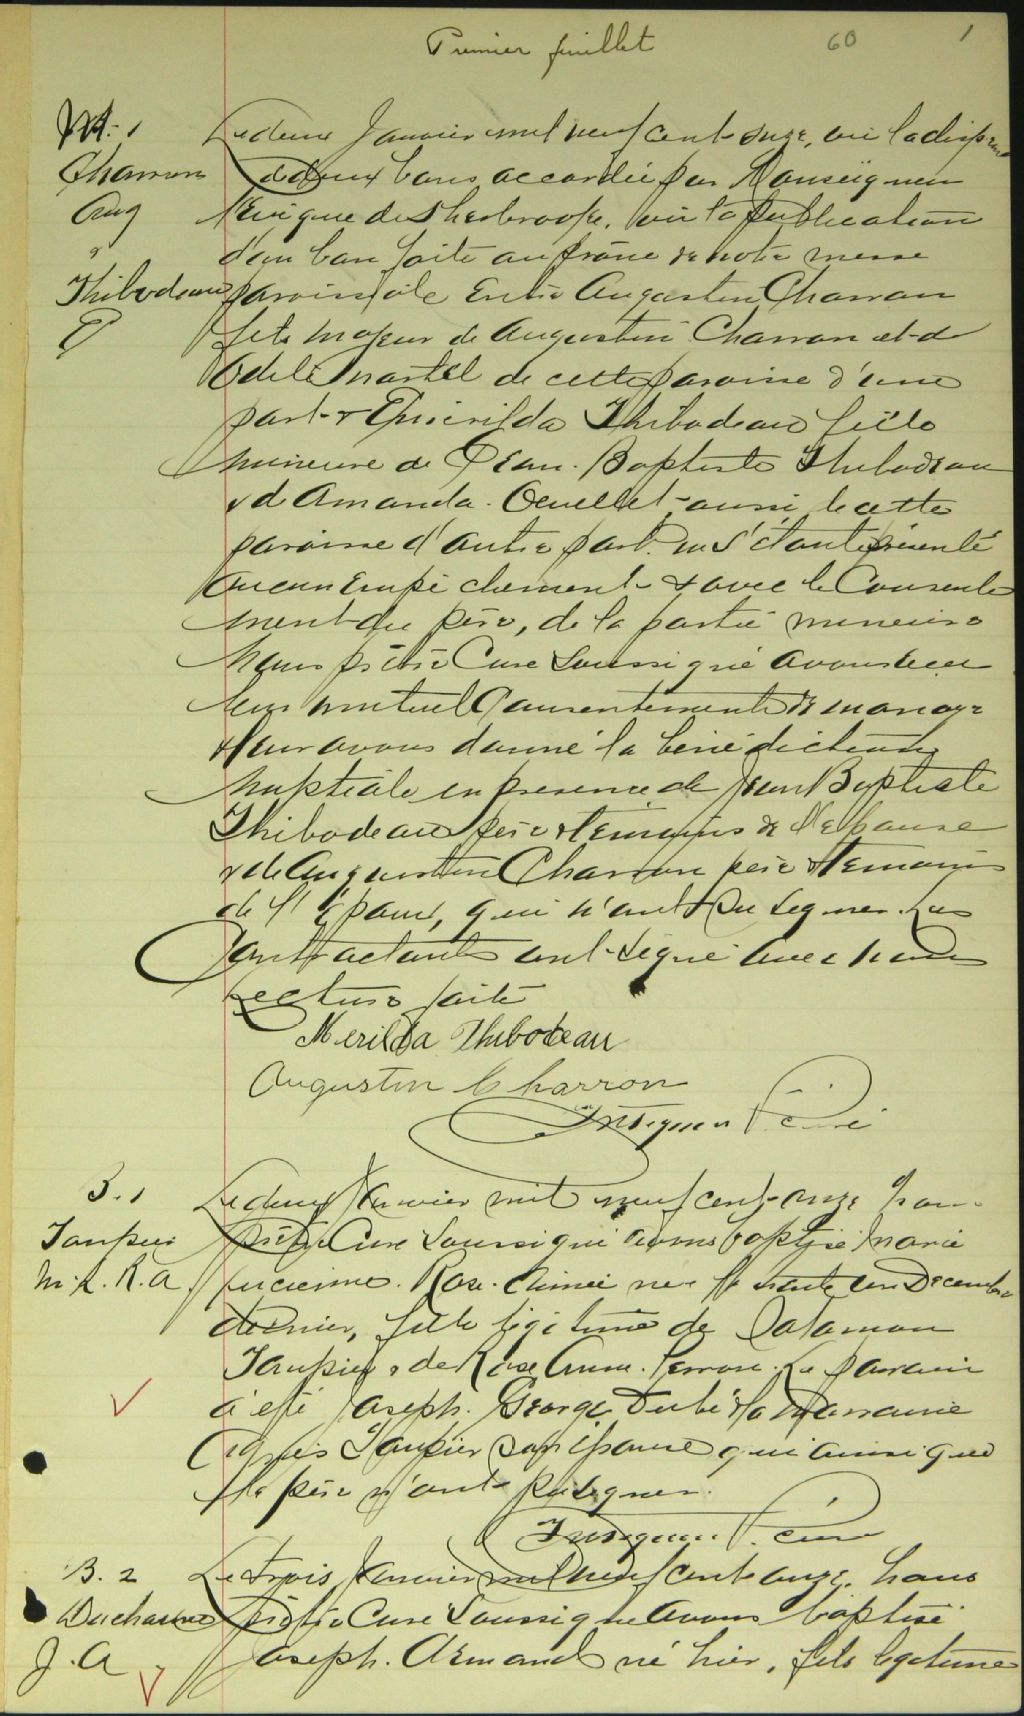 Premier feuillet 60 1
M. 1 Le deux Janvier mil neuf cent onze, vu la dispense
Charron de deux bans accordée par Monseigneur
Aug l'Evêque de Sherbrooke, vu la publication
& d'un ban faite au prône de notre messe
Thibodeau paroissiale Entre Augustin Charron
E fils majeur de Augustin Charron et de
Odele Martel de cette paroisse d'une
part & Emerilda Thibodeau fille
mineure de Jean. Baptiste Thibodeau
& de Amanda. Ouellet aussi de cette
paroisse d'autre part. ne s'étant présenté
aucun Empêchement & avec le Consente
ment du père, de la partie mineure
Nous prêtre Curé Soussigné avons reçu
leur mutuel Consentement de mariage
& leur avons donné la bénédiction
nuptiale en presence de Jean Baptiste
Thibodeau père & témoins de l'Epouse
& de Augustin Charron père & temoins
de l'époux, qui n'ont su signer. Les
Contractants ont signé avec nous
Lecture faite
Merilda Thibodeau
Augustin Charron
Ptre curé
B. 1 Le deux Janvier mil neuf cent onze Nous
Taupier prêtre Curé Soussigné avons baptisé Marie
M. L. R. A. Lucienne. Rose. Aimée née le trente un Decembre
dernier, fille légitime de Salomon
Taupier & de Rose Anna. Perron. Le parrain
a été Joseph. George Dubé & la Marraine
Agnès Taupier son épouse qui ainsi que
le père n'ont pu signer.
Ptre curé
B. 2 Le trois Janvier mil neuf cent onze. Nous
Ducharme prêtre Curé Soussigné avons baptisé
J. A Joseph. Armand né hier, fils legitime